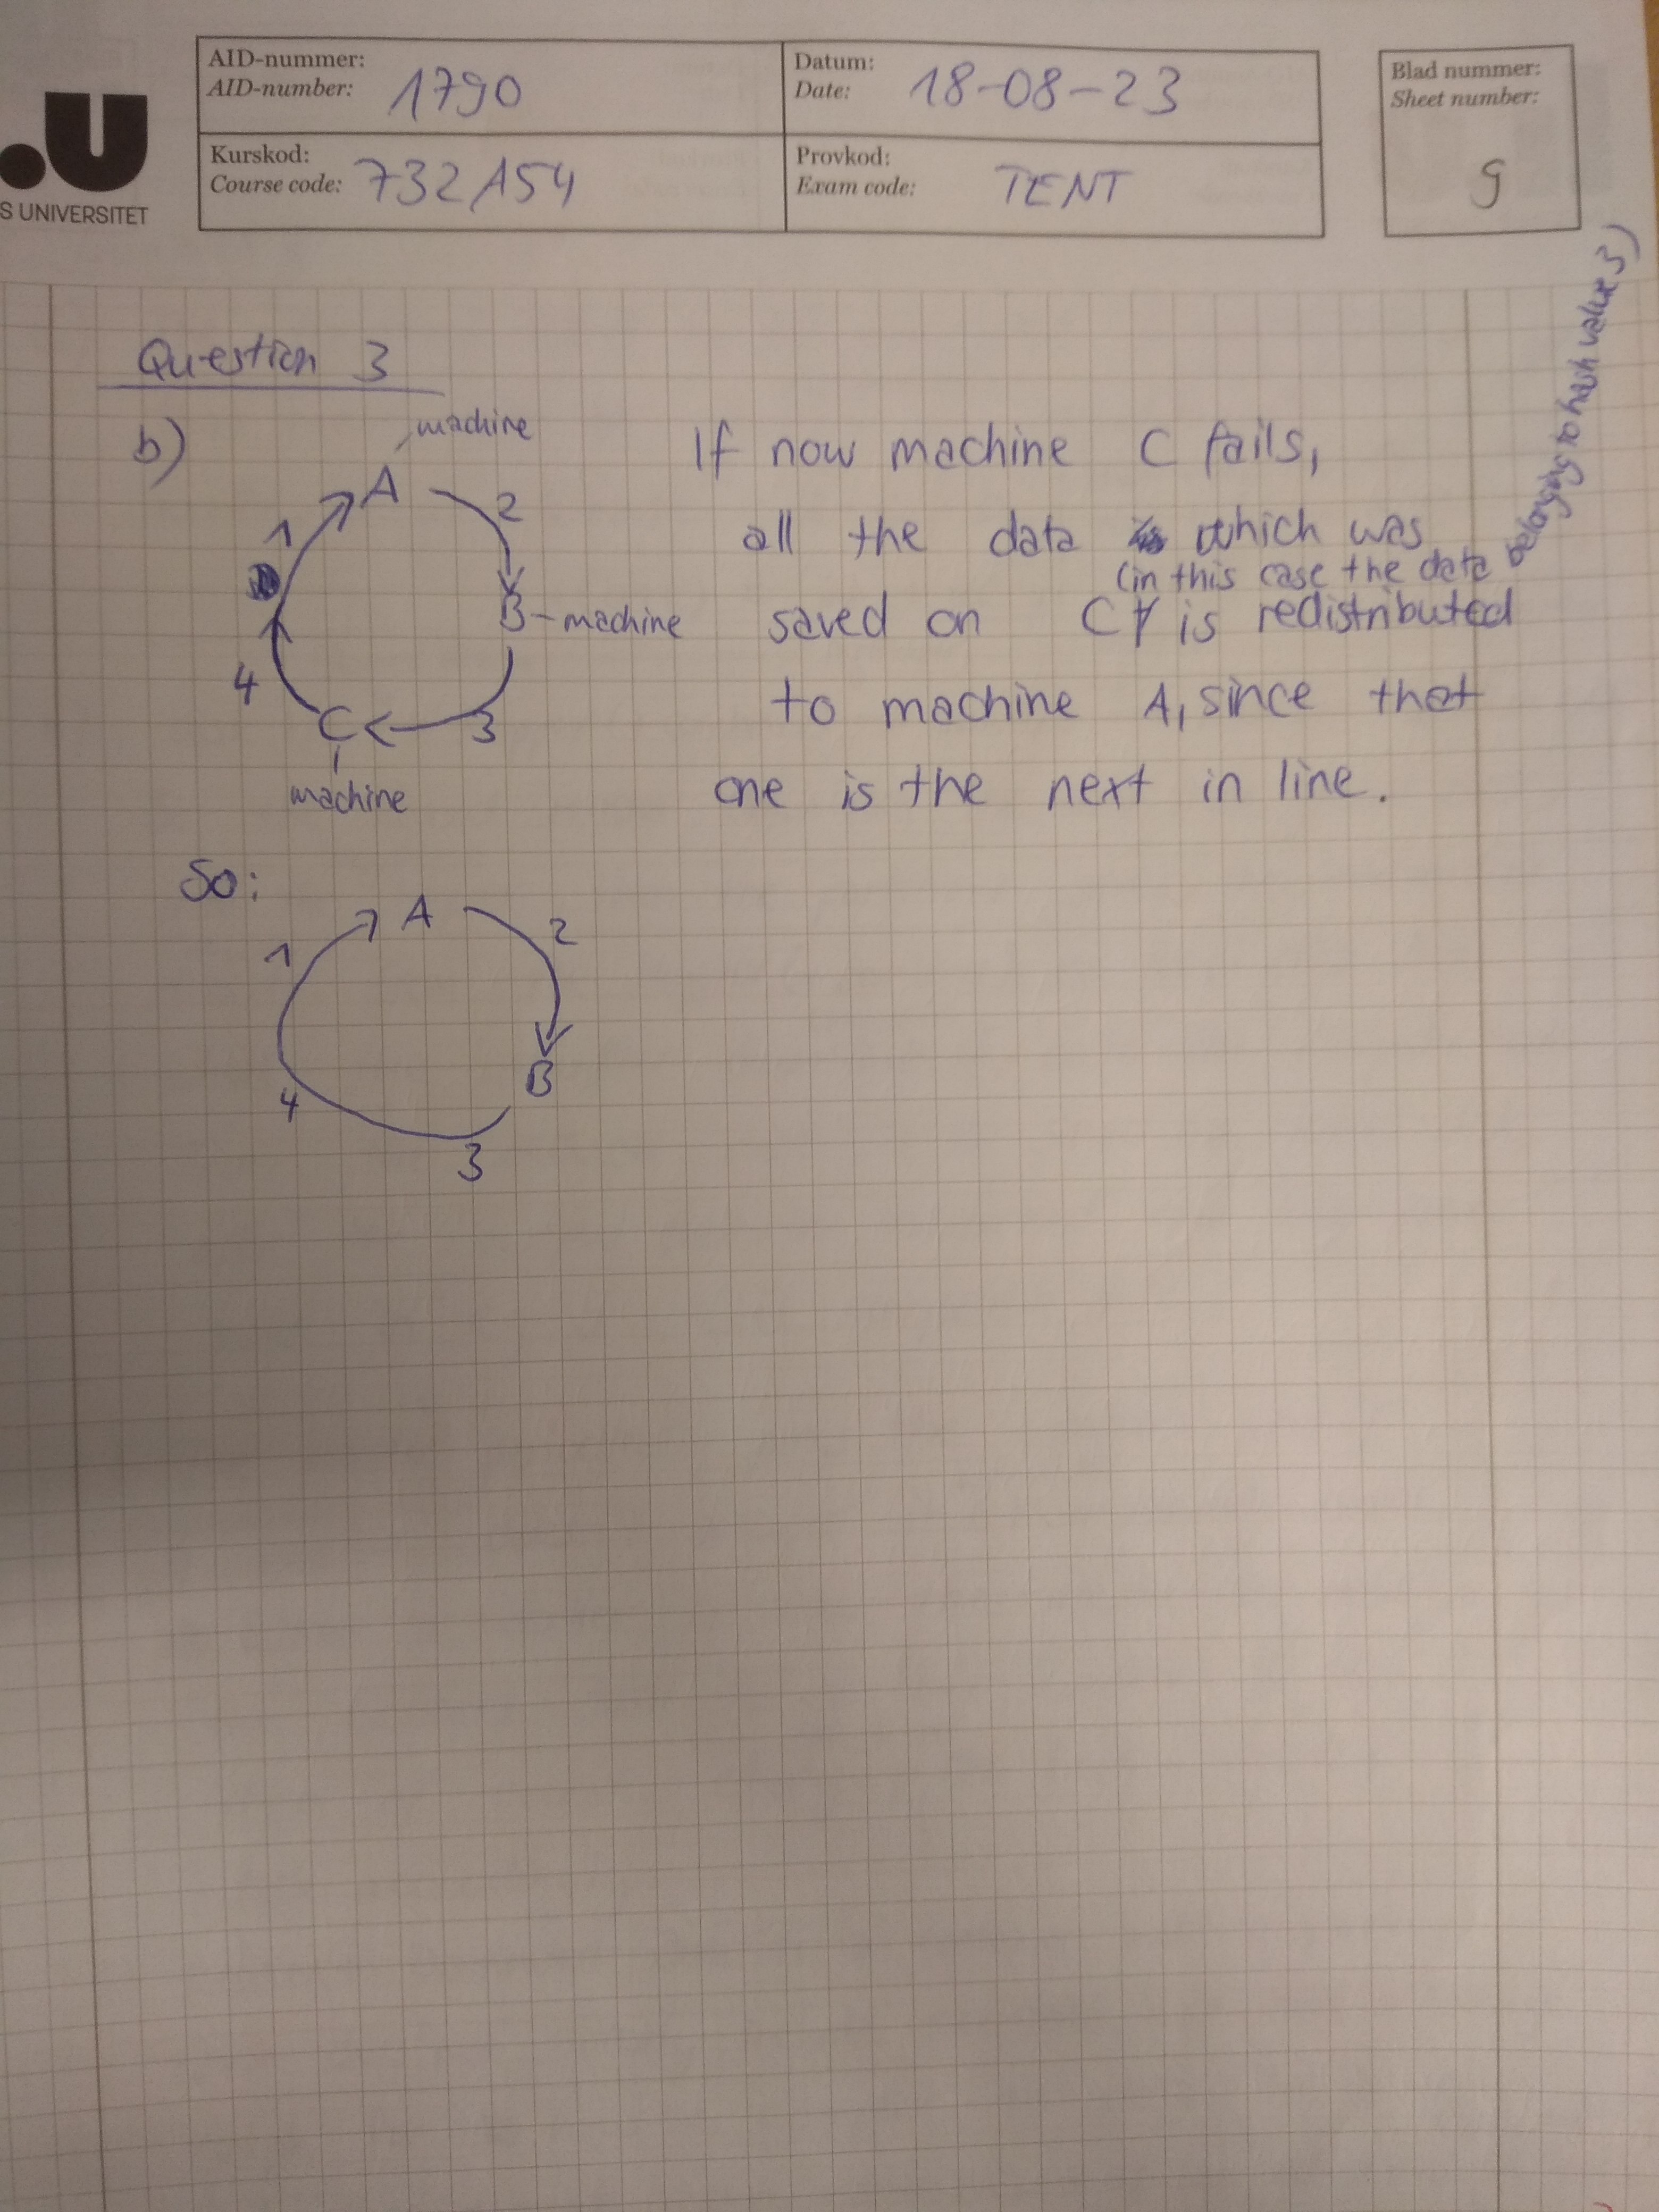 AID-nummer:
AID-number: 1790
Datum:
Date: 18-08-23
Blad nummer:
Sheet number:
9
Kurskod:
Course code: 732A54
Provkod:
Exam code: TENT
.U
S UNIVERSITET
Question 3
b)
machine
A
1
2
B - machine
4
C
3
machine
If now machine C fails,
all the data which was
(in this case the data belonging to hash value 3)
saved on C is redistributed
to machine A, since that
one is the next in line.
So:
A
1
2
B
4
3